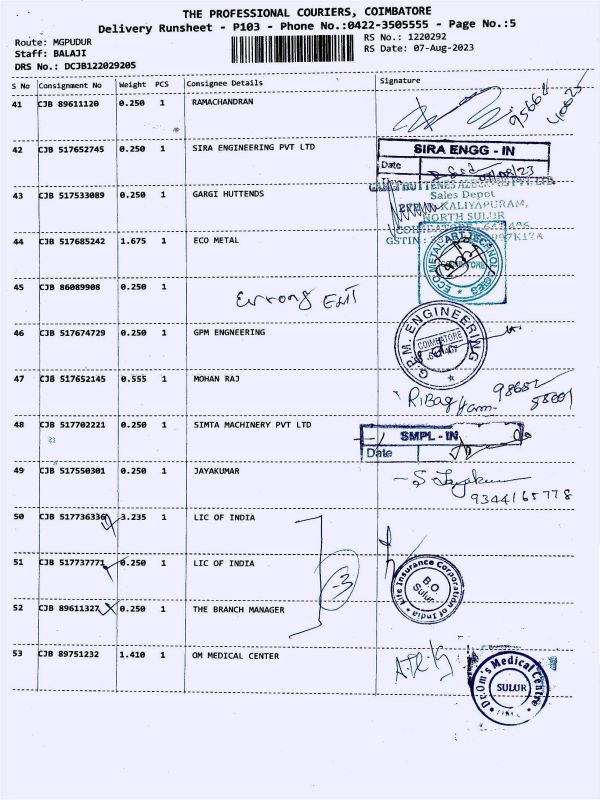 THE PROFESSIONAL COURIERS, COIMBATORE
Delivery Runsheet - P103 - Phone No.:0422-3505555 - Page No.:5
Route: MGPUDUR
Staff: BALAJI
DRS No.: DCJB122029205
RS No.: 1220292
RS Date: 07-Aug-2023
S No Consignment No Weight PCS Consignee Details Signature
41 CJB 89611120 0.250 1 RAMACHANDRAN
42 CJB 517652745 0.250 1 SIRA ENGINEERING PVT LTD
SIRA ENGG - IN
Date
43 CJB 517533089 0.250 1 GARGI HUTTENDS
Sales Depot
KALIYAPURAM,
NORTH SULUR
GSTIN :
44 CJB 517685242 1.675 1 ECO METAL
45 CJB 86089908 0.250 1
46 CJB 517674729 0.250 1 GPM ENGNEERING
G.P.M. ENGINEERING
COIMBATORE
47 CJB 517652145 0.555 1 MOHAN RAJ
48 CJB 517702221 0.250 1 SIMTA MACHINERY PVT LTD
SMPL - IN
Date
49 CJB 517550301 0.250 1 JAYAKUMAR
9344165778
50 CJB 517736336 3.235 1 LIC OF INDIA
51 CJB 517737771 0.250 1 LIC OF INDIA
3
Life Insurance Corporation of India
B.O
Sulur
52 CJB 89611327 0.250 1 THE BRANCH MANAGER
53 CJB 89751232 1.410 1 OM MEDICAL CENTER
Dr.Om's Medical Centre
SULUR